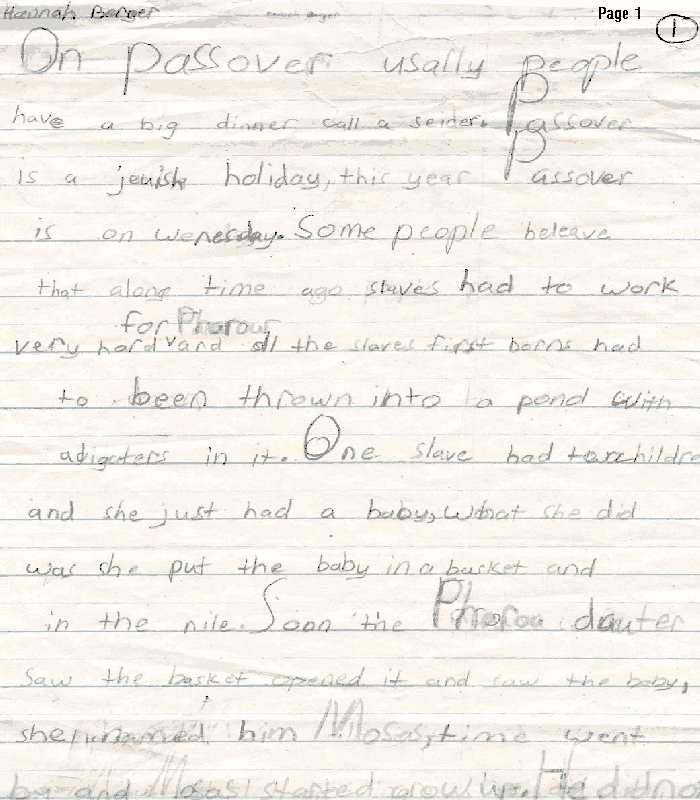 Hannah Berger
Page 1
1
On Passover usally people
have a big dinner call a seider. Passover
is a jewish holiday, this year Passover
is on wenesday. Some people beleave
that along time ago slaves had to work
for Pharour
very hard v and all the slaves first borns had
to been thrown into a pond with
adigaters in it. One slave had two childre
and she just had a baby, what she did
was she put the baby in a basket and
in the nile. Soon the Pharou dauter
Saw the basket opened it and saw the baby,
she named him Mosas, time went
by and Mosas started grow up. He didno